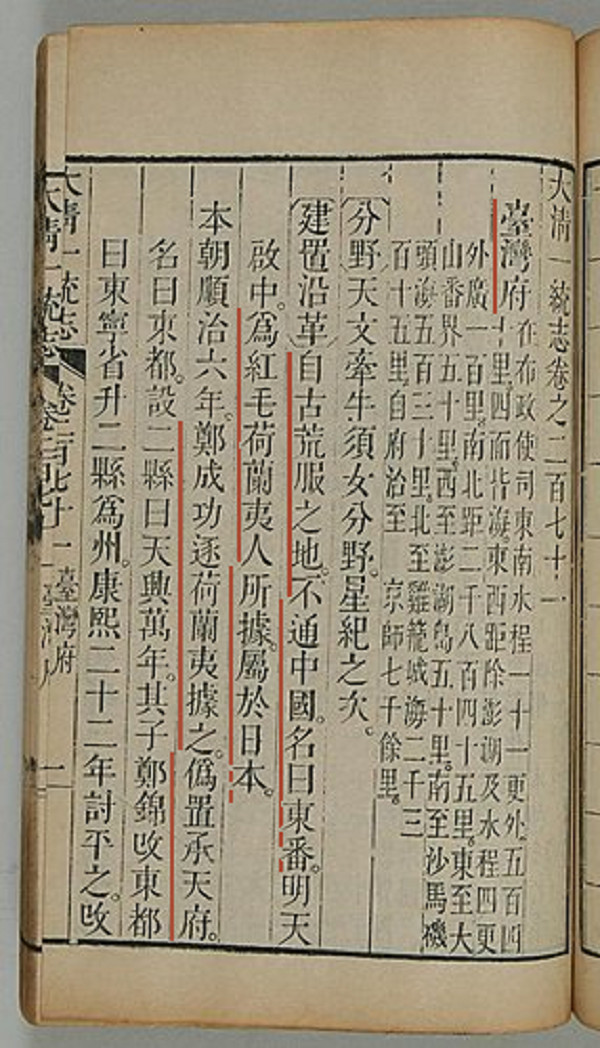 大清一統志卷之二百七十一
臺灣府在布政使司東南水程一十一更外。五百四
十里。四面皆海。東西距除澎湖及水程四更
外廣一百里。南北距二千八百四十五里。東至大
山番界五十里。西至澎湖島五十里。南至沙馬磯
頭海五百三十里。北至雞籠城海二千三
百十五里。自府治至 京師七千餘里。
〔分野〕天文牽牛須女分野。星紀之次。
〔建置沿革〕自古荒服之地。不通中國。名曰東番。明天
啟中。爲紅毛荷蘭夷人所據。屬於日本。
本朝順治六年。鄭成功逐荷蘭夷據之。僞置承天府。
名曰東都。設二縣曰天興萬年。其子鄭錦改東都
曰東寧省。升二縣爲州。康熙二十二年討平之。改
大清一統志 卷二百七十一 臺灣府 一
大清一統志